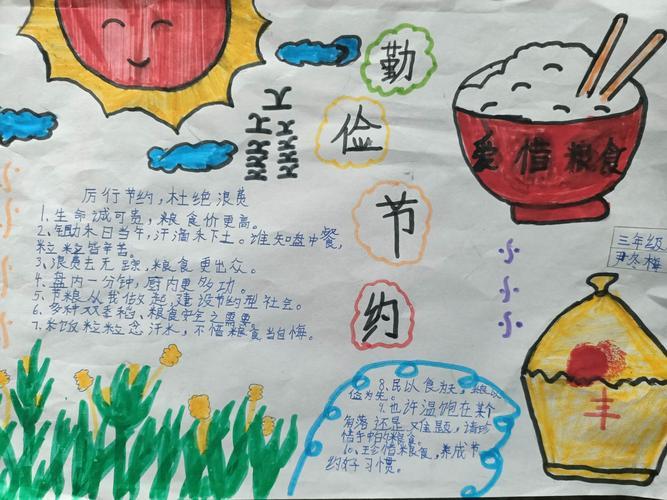 勤
俭
节
约
爱惜粮食
三年级
尹冬梅
丰
厉行节约,杜绝浪费
1、生命诚可贵,粮食价更高。
2、锄禾日当午,汗滴禾下土。谁知盘中餐,
粒粒皆辛苦。
3、浪费去无踪,粮食更出众。
4、盘内一分钟,厨内更多功。
5、节粮从我做起,建设节约型社会。
6、多种双季稻、粮食安全之需要。
7、米饭粒粒念汗水,不惜粮食当自悔。
8、民以食为天,粮以
俭为先。
9、也许温饱在某个
角落还是难题,请珍
惜手中的粮食。
10、珍惜粮食,养成节
约好习惯。